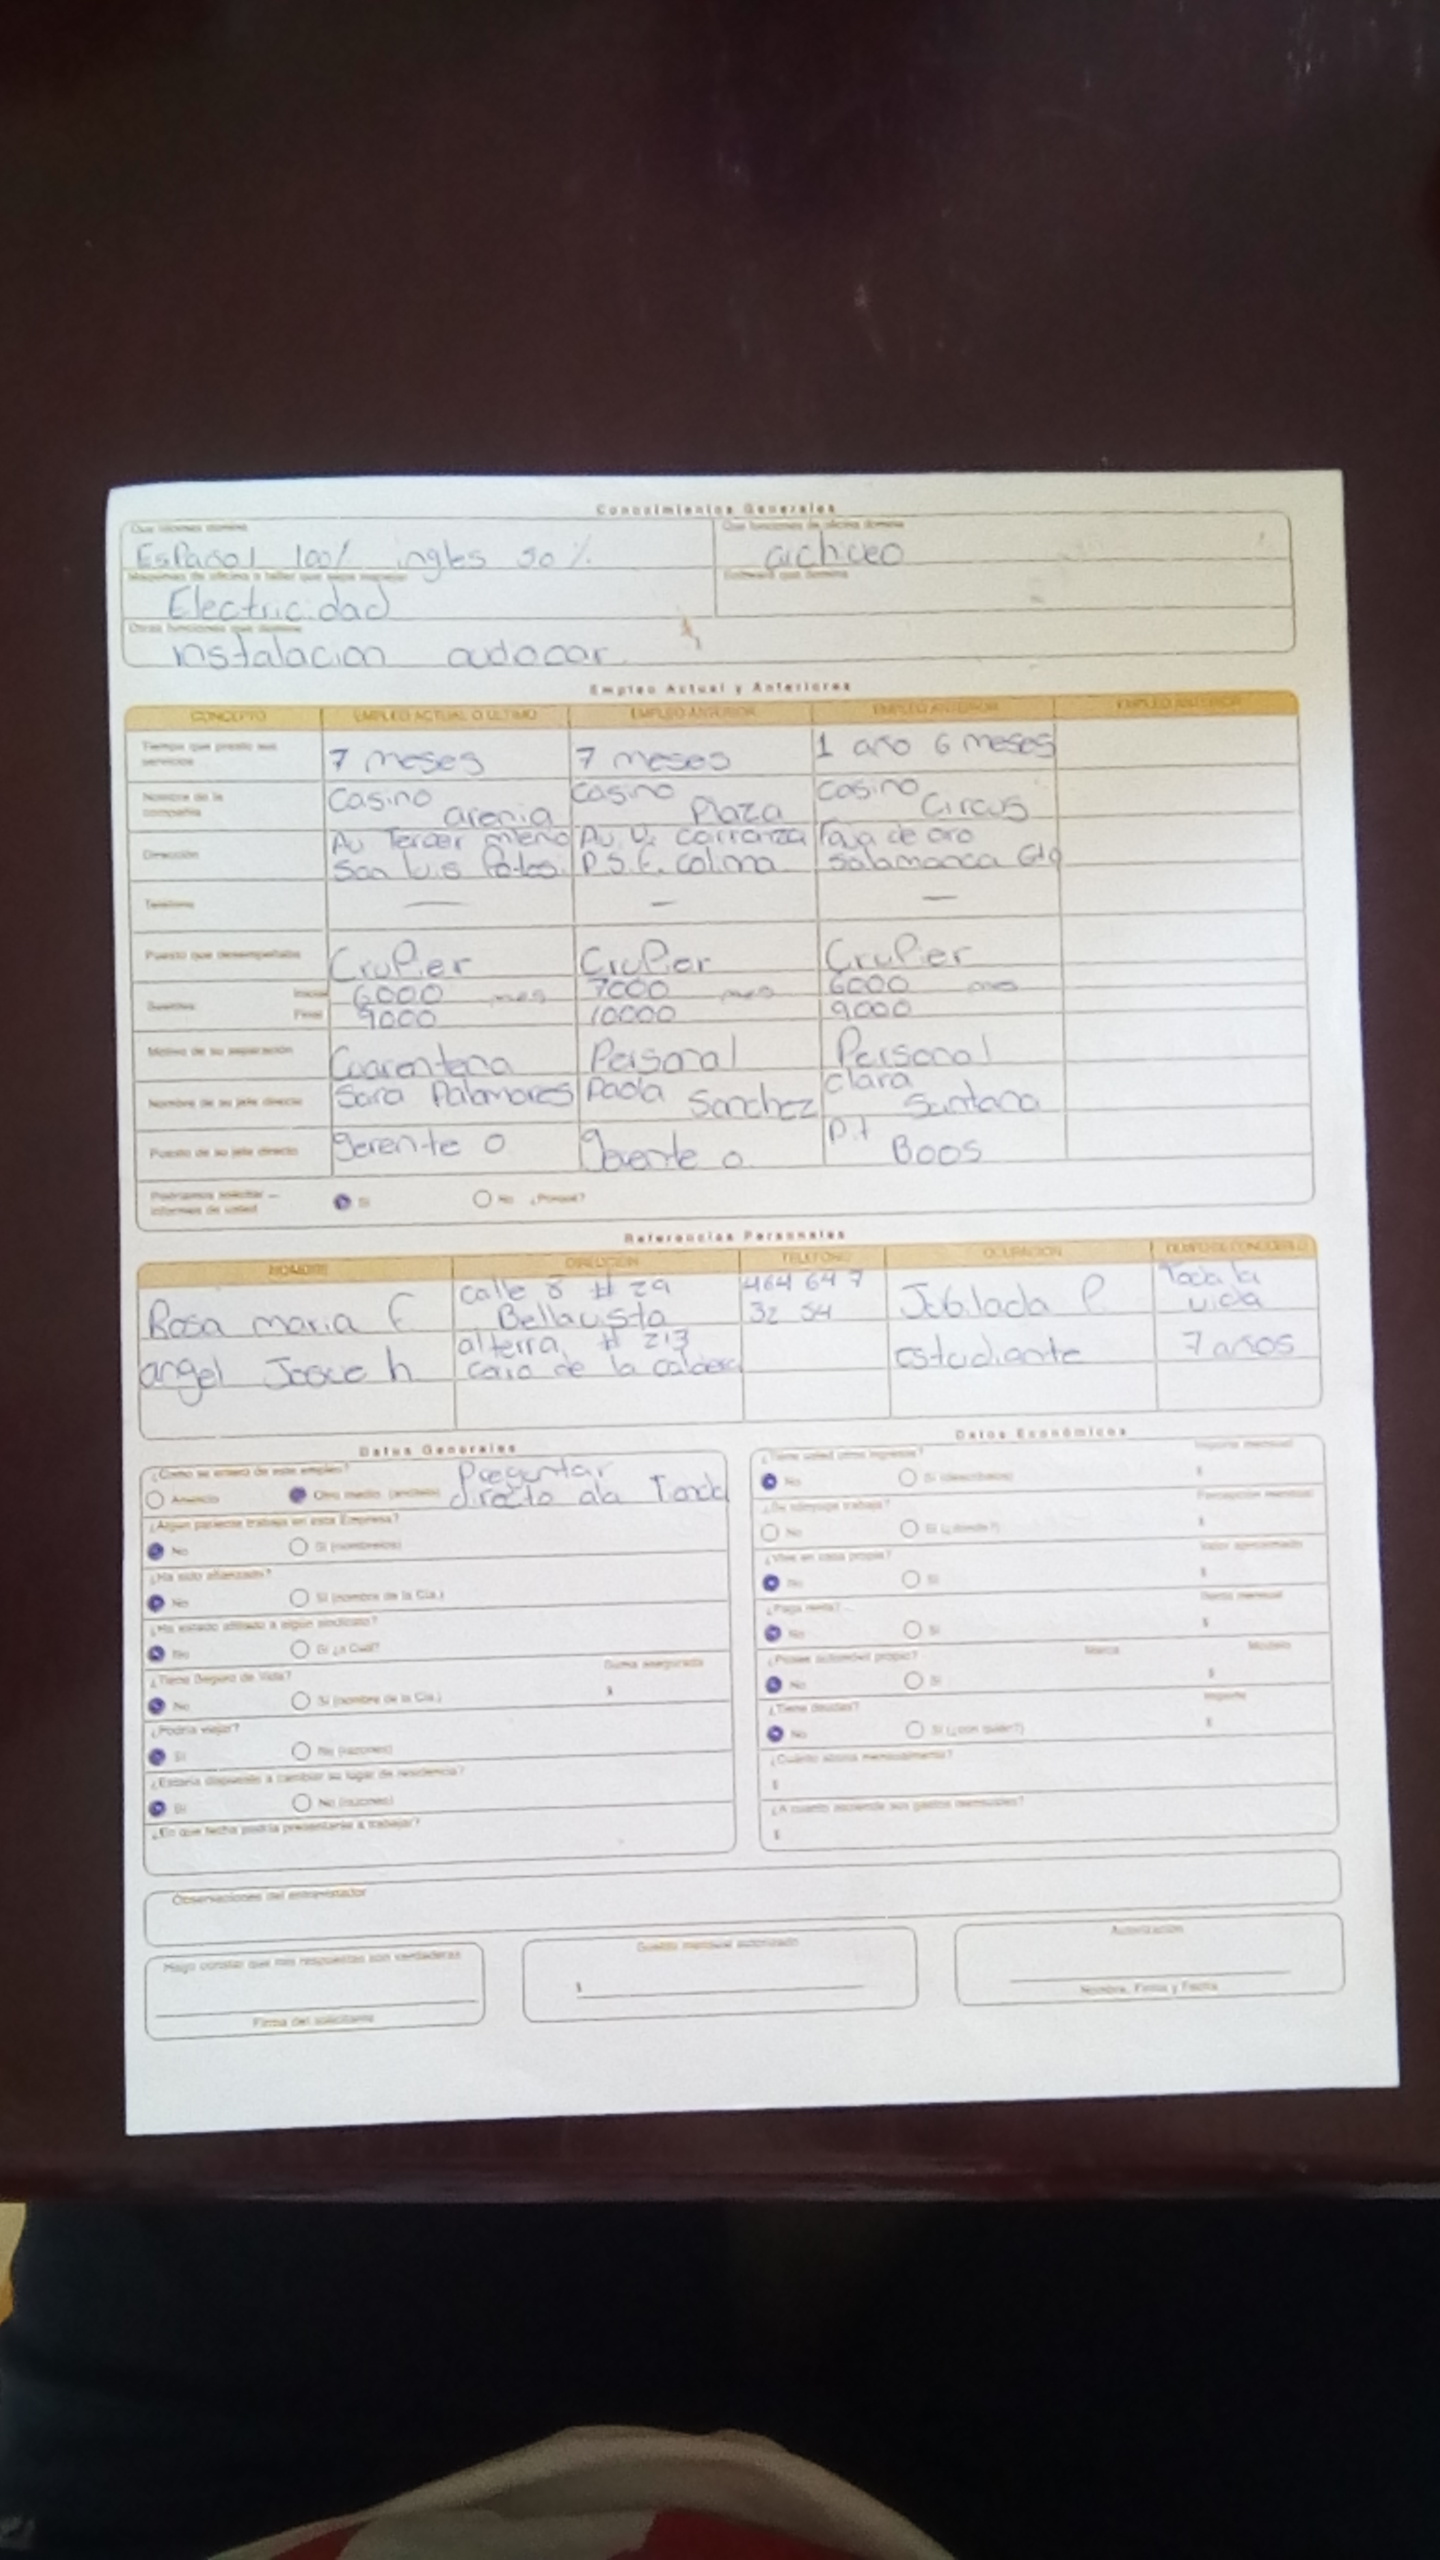 Conocimientos Generales
Que idiomas domina
Que funciones de oficina domina
Español 100% ingles 50%
archiveo
Maquinas de oficina o taller que sepa manejar
Software que domina
Electricidad
Otras funciones que domina
instalacion audocar
Empleo Actual y Anteriores
CONCEPTO EMPLEO ACTUAL O ULTIMO EMPLEO ANTERIOR EMPLEO ANTERIOR EMPLEO ANTERIOR
Tiempo que presto sus servicios
7 meses 7 meses 1 año 6 meses
Nombre de la compañia
Casino arenia Casino Plaza Casino Circus
Dirección
Av Tercer San Luis Potos. Av. V. Carranza P.S.E. Colima de oro Salamanca Gto
Teléfono — — —
Puesto que desempeñaba
CruPier CruPier CruPier
Sueldos Inicial 6000 mes 7000 mes 6000 mes
Final 9000 10000 9000
Motivo de su separación
Cuarentena Personal Personal
Nombre de su jefe directo
Sara Palomares Paola Sanchez Clara Santana
Puesto de su jefe directo
gerente o gerente o. Pit Boos
Podríamos solicitar informes de usted Si No ¿Porqué?
Referencias Personales
NOMBRE DIRECCION TELEFONO OCUPACION TIEMPO DE CONOCERLO
Rosa maria F calle 8 # 29 Bellavista 464 647 32 54 Jubilada P Toda la vida
angel Josue h alterra # 213 estudiante 7 años
Datos Generales
Datos Económicos
¿Como se enteró de este empleo?
Anuncio Otro medio (anótelo) Preguntar directo ala
¿Algún pariente trabaja en esta Empresa?
No Si (nómbrelos)
¿Ha sido afianzado?
No Si (nombre de la Cía.)
¿Ha estado afiliado a algún sindicato?
No Si ¿a Cuál?
¿Tiene Seguro de Vida? Suma asegurada
No Si (nombre de la Cía.) $
¿Podría viajar?
Si No (razones)
¿Estaría dispuesto a cambiar su lugar de residencia?
Si No (razones)
¿En que fecha podría presentarse a trabajar?
¿Tiene usted otros ingresos? Importe mensual
No Si (descríbalos) $
¿Su cónyuge trabaja? Percepción mensual
No Si (¿dónde?) $
¿Vive en casa propia? Valor aproximado
No Si $
¿Paga renta? Renta mensual
No Si $
¿Posee automóvil propio? Marca Modelo
No Si $
¿Tiene deudas? Importe
No Si (¿con quién?) $
¿Cuánto abona mensualmente?
$
¿A cuánto ascienden sus gastos mensuales?
$
Observaciones del entrevistador
Hago constar que mis respuestas son verdaderas
Firma del solicitante
Sueldo mensual autorizado
$
Autorización
Nombre, Firma y Fecha